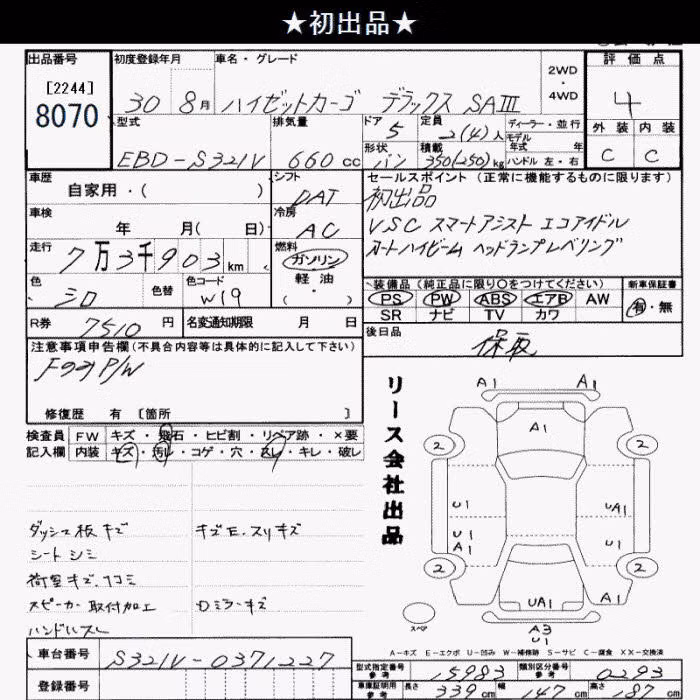 ★初出品★
出品番号
[2244]
8070
初度登録年月
30 8月
車名・グレード
ハイゼットカーゴ デラックス SAIII
2WD
・
4WD
評価点
4
外装 内装
C C
型式
EBD-S321V
排気量
660 cc
ドア 5
定員 2(4)人
ディーラー・並行
モデル年式 年
形状 バン
積載 350(250)kg
ハンドル 左・右
車歴
自家用・( )
シフト
DAT
車検
年 月( 日)
冷房
AC
走行
7万3千903km
燃料
ガソリン
軽油
( ・ )
色
シロ
色替
色コード
W19
R券
7510円
名変通知期限 月 日
セールスポイント(正常に機能するものに限ります)
初出品
VSC スマートアシスト エコアイドル
オートハイビーム ヘッドランプレベリング
装備品(純正品に限り○をつけてください)
PS PW ABS エアB AW
SR ナビ TV カワ
新車保証書
有・無
後日品
保取
注意事項申告欄(不具合内容等は具体的に記入して下さい)
P/W
修復歴 有 〔箇所 〕
検査員記入欄
FW キズ・飛石・ヒビ割・リペア跡・×要
内装 キズ・汚レ・コゲ・穴・スレ・キレ・破レ
ダッシュ板キズ
シートシミ
荷室キズ、凹コミ
スピーカー取付加工
ハンドルスレ
キズE、スリキズ
Dミラーキズ
リース会社出品
A1 A1
A1
2 2
U1 UA1
U1 U1
A1
2 2
UA1
A3
U1
スペア
A-キズ E-エクボ U-凹み W-補修跡 S-サビ C-腐食 XX-交換済
車台番号
S321V-0371227
登録番号
型式指定番号 参考 15983
類別区分番号 参考 0293
車庫証明用 参考 長さ 339cm 幅 147cm 高さ 187cm